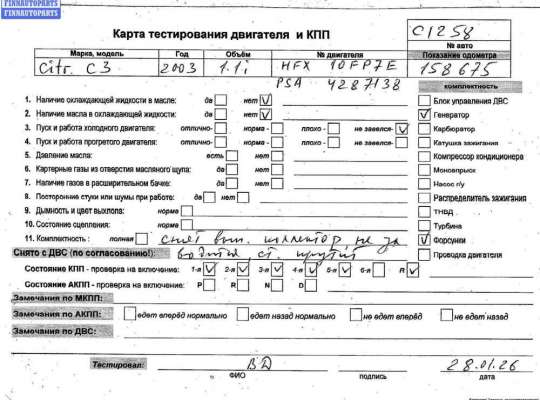 FINNAUTOPARTS
FINNAUTOPARTS
Карта тестирования двигателя и КПП
C1258
№ авто
Марка, модель Год Объём № двигателя Показание одометра
Citr. C3 2003 1.1i HFX 10FP7E 158675
PSA 4287138
комплектность
1. Наличие охлаждающей жидкости в масле: да нет V
Блок управления ДВС
2. Наличие масла в охлаждающей жидкости: да нет V
V Генератор
3. Пуск и работа холодного двигателя: отлично- норма - плохо - не завелся- V
Карбюратор
4. Пуск и работа прогретого двигателя: отлично- норма - плохо - не завелся-
Катушка зажигания
5. Давление масла: есть нет
Компрессор кондиционера
6. Картерные газы из отверстия масляного щупа: да нет
Моновпрыск
7. Наличие газов в расширительном бачке: да нет
Насос г/у
8. Посторонние стуки или шумы при работе: да нет
Распределитель зажигания
9. Дымность и цвет выхлопа: норма
ТНВД
10. Состояние сцепления: норма
Турбина
11. Комплектность : полная снят вып. коллектор, не за
V Форсунки
Снято с ДВС (по согласованию!): водится, ст. крутит
Проводка двигателя
Состояние КПП - проверка на включение: 1-я V 2-я V 3-я V 4-я V 5-я V 6-я R V
Состояние АКПП - проверка на включение: P R N D
Замечания по МКПП:
Замечания по АКПП: едет вперёд нормально едет назад нормально не едет вперёд не едет назад
Замечания по ДВС:
Тестировал: ВД 28.01.26
ФИО подпись дата